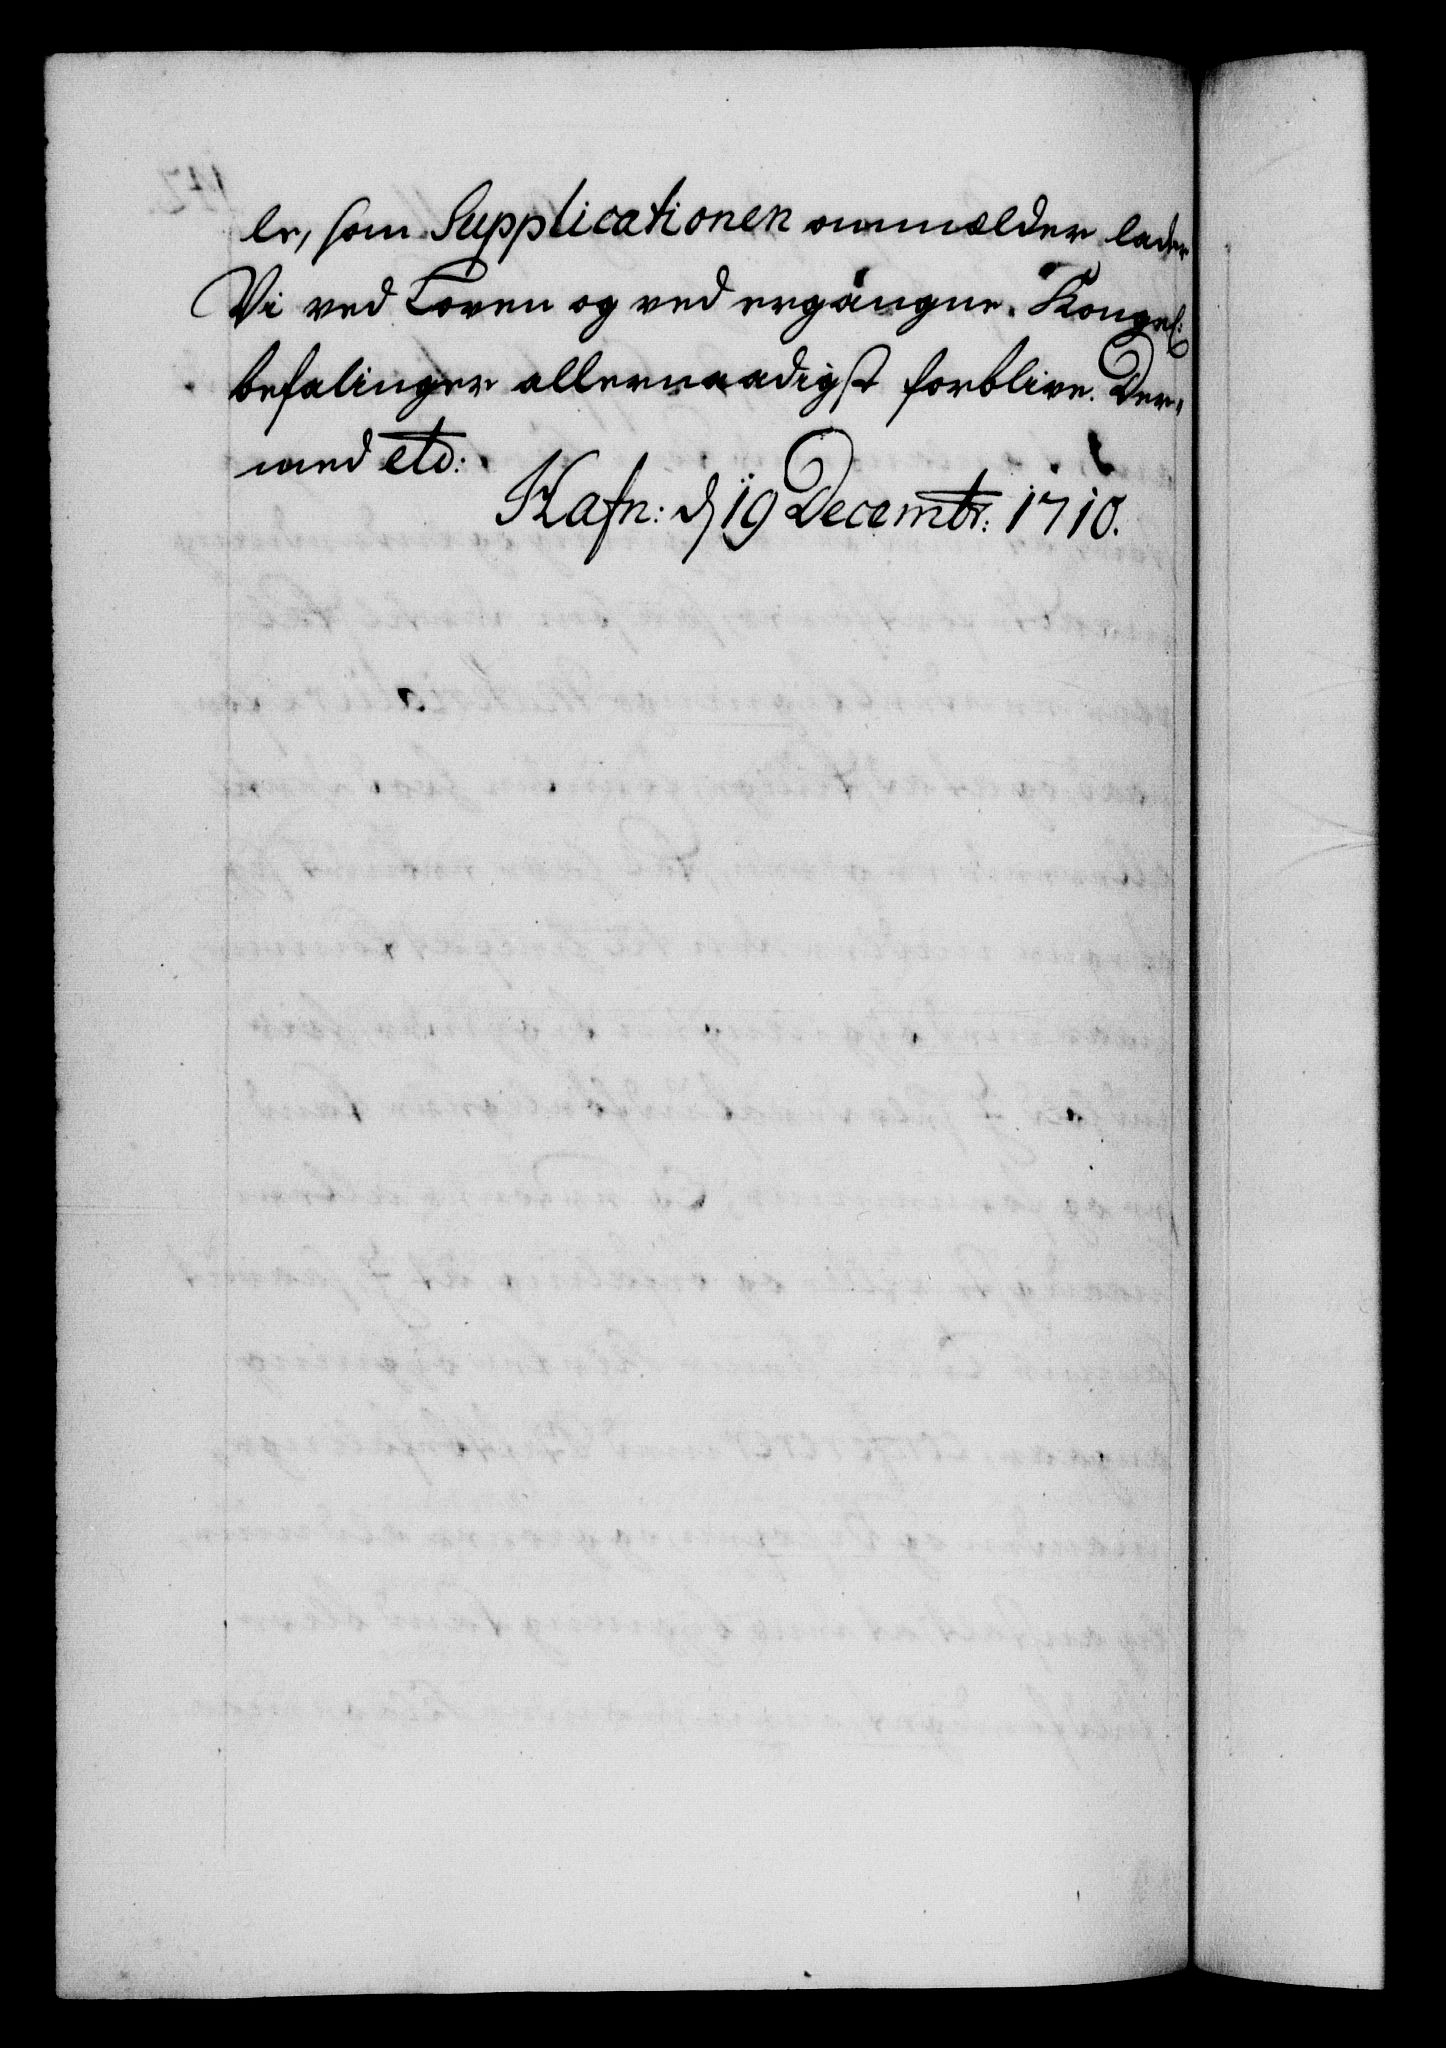 le, som Supplicationen ommelder lader
Vi ved Loven og ved ergangne Kongel:
befalinger allernaadigst forblive. Der-
med etc:
Hafn: d 19 Decembr: 1710.